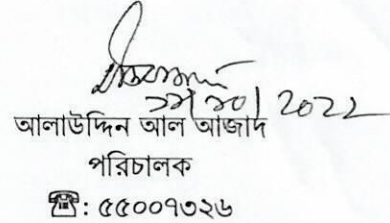 ১১/১০/2022
আলাউদ্দিন আল আজাদ
পরিচালক
☎: ৫৫০০৭৩২৬